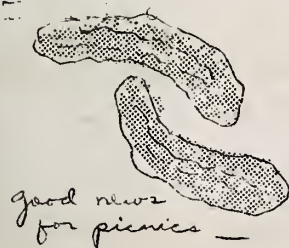 good news
for picnics —